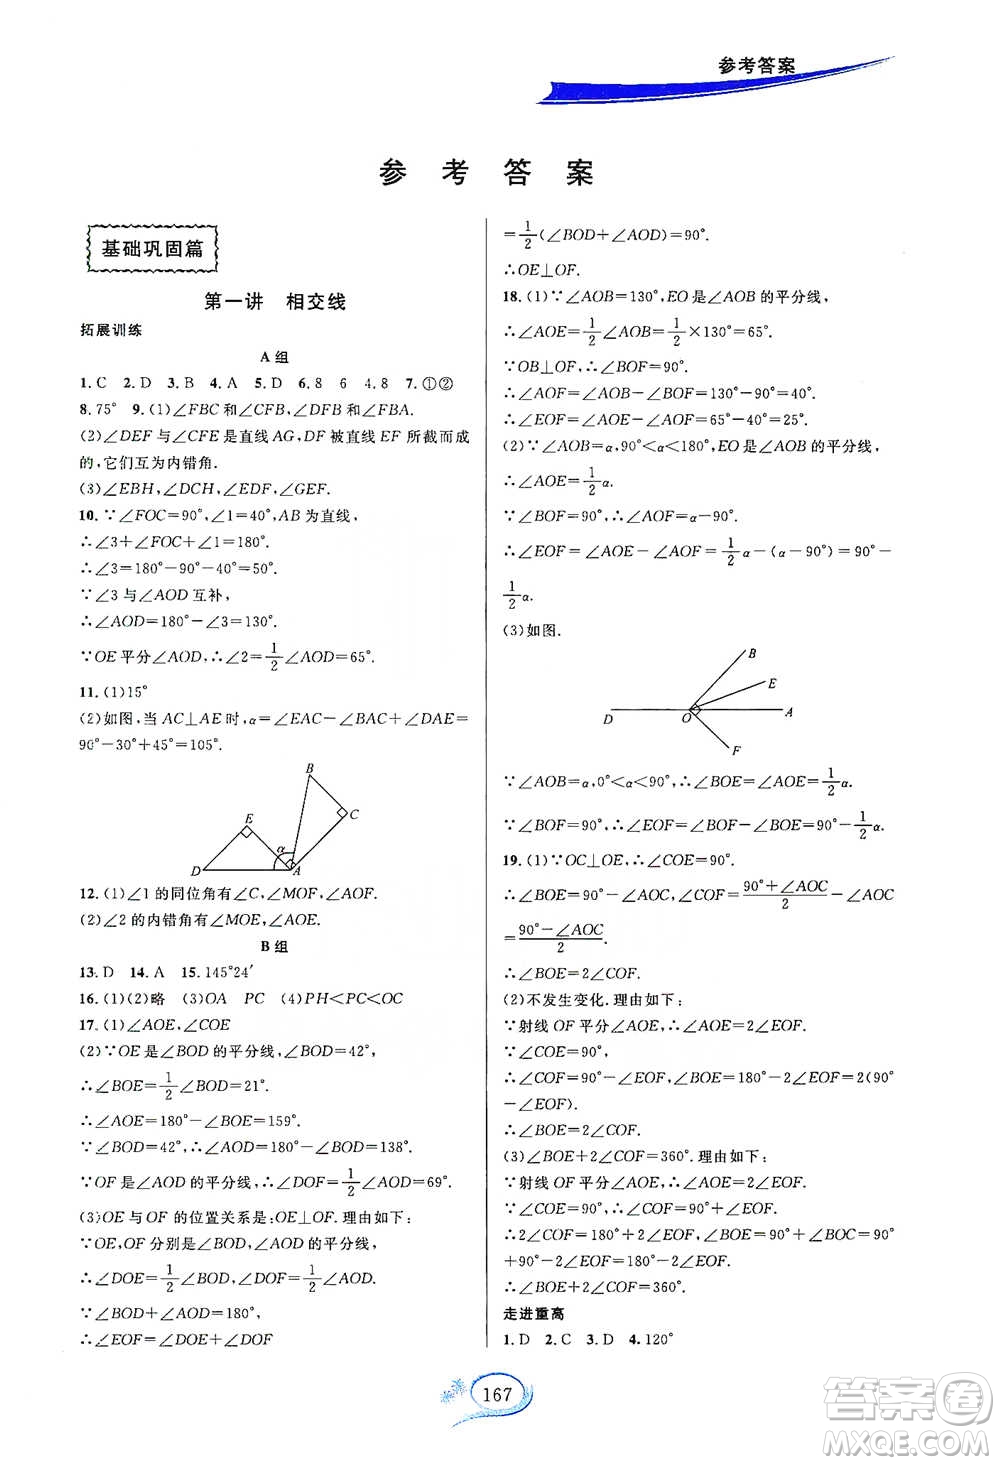 参考答案
参 考 答 案
基础巩固篇
第一讲 相交线
拓展训练
A 组
1. C 2. D 3. B 4. A 5. D 6. 8 6 4.8 7. ①②
8. 75° 9. (1)∠FBC和∠CFB,∠DFB和∠FBA.
(2)∠DEF与∠CFE是直线AG,DF被直线EF所截而成
的,它们互为内错角.
(3)∠EBH,∠DCH,∠EDF,∠GEF.
10. ∵∠FOC=90°,∠1=40°,AB为直线,
∴∠3+∠FOC+∠1=180°.
∴∠3=180°-90°-40°=50°.
∵∠3与∠AOD互补,
∴∠AOD=180°-∠3=130°.
∵OE平分∠AOD,∴∠2=1/2∠AOD=65°.
11. (1)15°
(2)如图,当AC⊥AE时,α=∠EAC-∠BAC+∠DAE=
90°-30°+45°=105°.
B
C
E
α
D
A
12. (1)∠1的同位角有∠C,∠MOF,∠AOF.
(2)∠2的内错角有∠MOE,∠AOE.
B 组
13. D 14. A 15. 145°24′
16. (1)(2)略 (3)OA PC (4)PH<PC<OC
17. (1)∠AOE,∠COE
(2)∵OE是∠BOD的平分线,∠BOD=42°,
∴∠BOE=1/2∠BOD=21°.
∴∠AOE=180°-∠BOE=159°.
∵∠BOD=42°,∴∠AOD=180°-∠BOD=138°.
∵OF是∠AOD的平分线,∴∠DOF=1/2∠AOD=69°.
(3)OE与OF的位置关系是:OE⊥OF.理由如下:
∵OE,OF分别是∠BOD,∠AOD的平分线,
∴∠DOE=1/2∠BOD,∠DOF=1/2∠AOD.
∵∠BOD+∠AOD=180°,
∴∠EOF=∠DOE+∠DOF
=1/2(∠BOD+∠AOD)=90°.
∴OE⊥OF.
18. (1)∵∠AOB=130°,EO是∠AOB的平分线,
∴∠AOE=1/2∠AOB=1/2×130°=65°.
∵OB⊥OF,∴∠BOF=90°.
∴∠AOF=∠AOB-∠BOF=130°-90°=40°.
∴∠EOF=∠AOE-∠AOF=65°-40°=25°.
(2)∵∠AOB=α,90°<α<180°,EO是∠AOB的平分线,
∴∠AOE=1/2α.
∵∠BOF=90°,∴∠AOF=α-90°.
∴∠EOF=∠AOE-∠AOF=1/2α-(α-90°)=90°-
1/2α.
(3)如图.
B
E
D
O
A
F
∵∠AOB=α,0°<α<90°,∴∠BOE=∠AOE=1/2α.
∵∠BOF=90°,∴∠EOF=∠BOF-∠BOE=90°-1/2α.
19. (1)∵OC⊥OE,∴∠COE=90°.
∴∠BOE=90°-∠AOC,∠COF=(90°+∠AOC)/2-∠AOC
=(90°-∠AOC)/2.
∴∠BOE=2∠COF.
(2)不发生变化.理由如下:
∵射线OF平分∠AOE,∴∠AOE=2∠EOF.
∵∠COE=90°,
∴∠COF=90°-∠EOF,∠BOE=180°-2∠EOF=2(90°
-∠EOF).
∴∠BOE=2∠COF.
(3)∠BOE+2∠COF=360°.理由如下:
∵射线OF平分∠AOE,∴∠AOE=2∠EOF.
∵∠COE=90°,∴∠COF=90°+∠EOF.
∴2∠COF=180°+2∠EOF,∠BOE=∠BOC+90°=90°
+90°-2∠EOF=180°-2∠EOF.
∴∠BOE+2∠COF=360°.
走进重高
1. D 2. C 3. D 4. 120°
167
答案卷
MXQE.COM